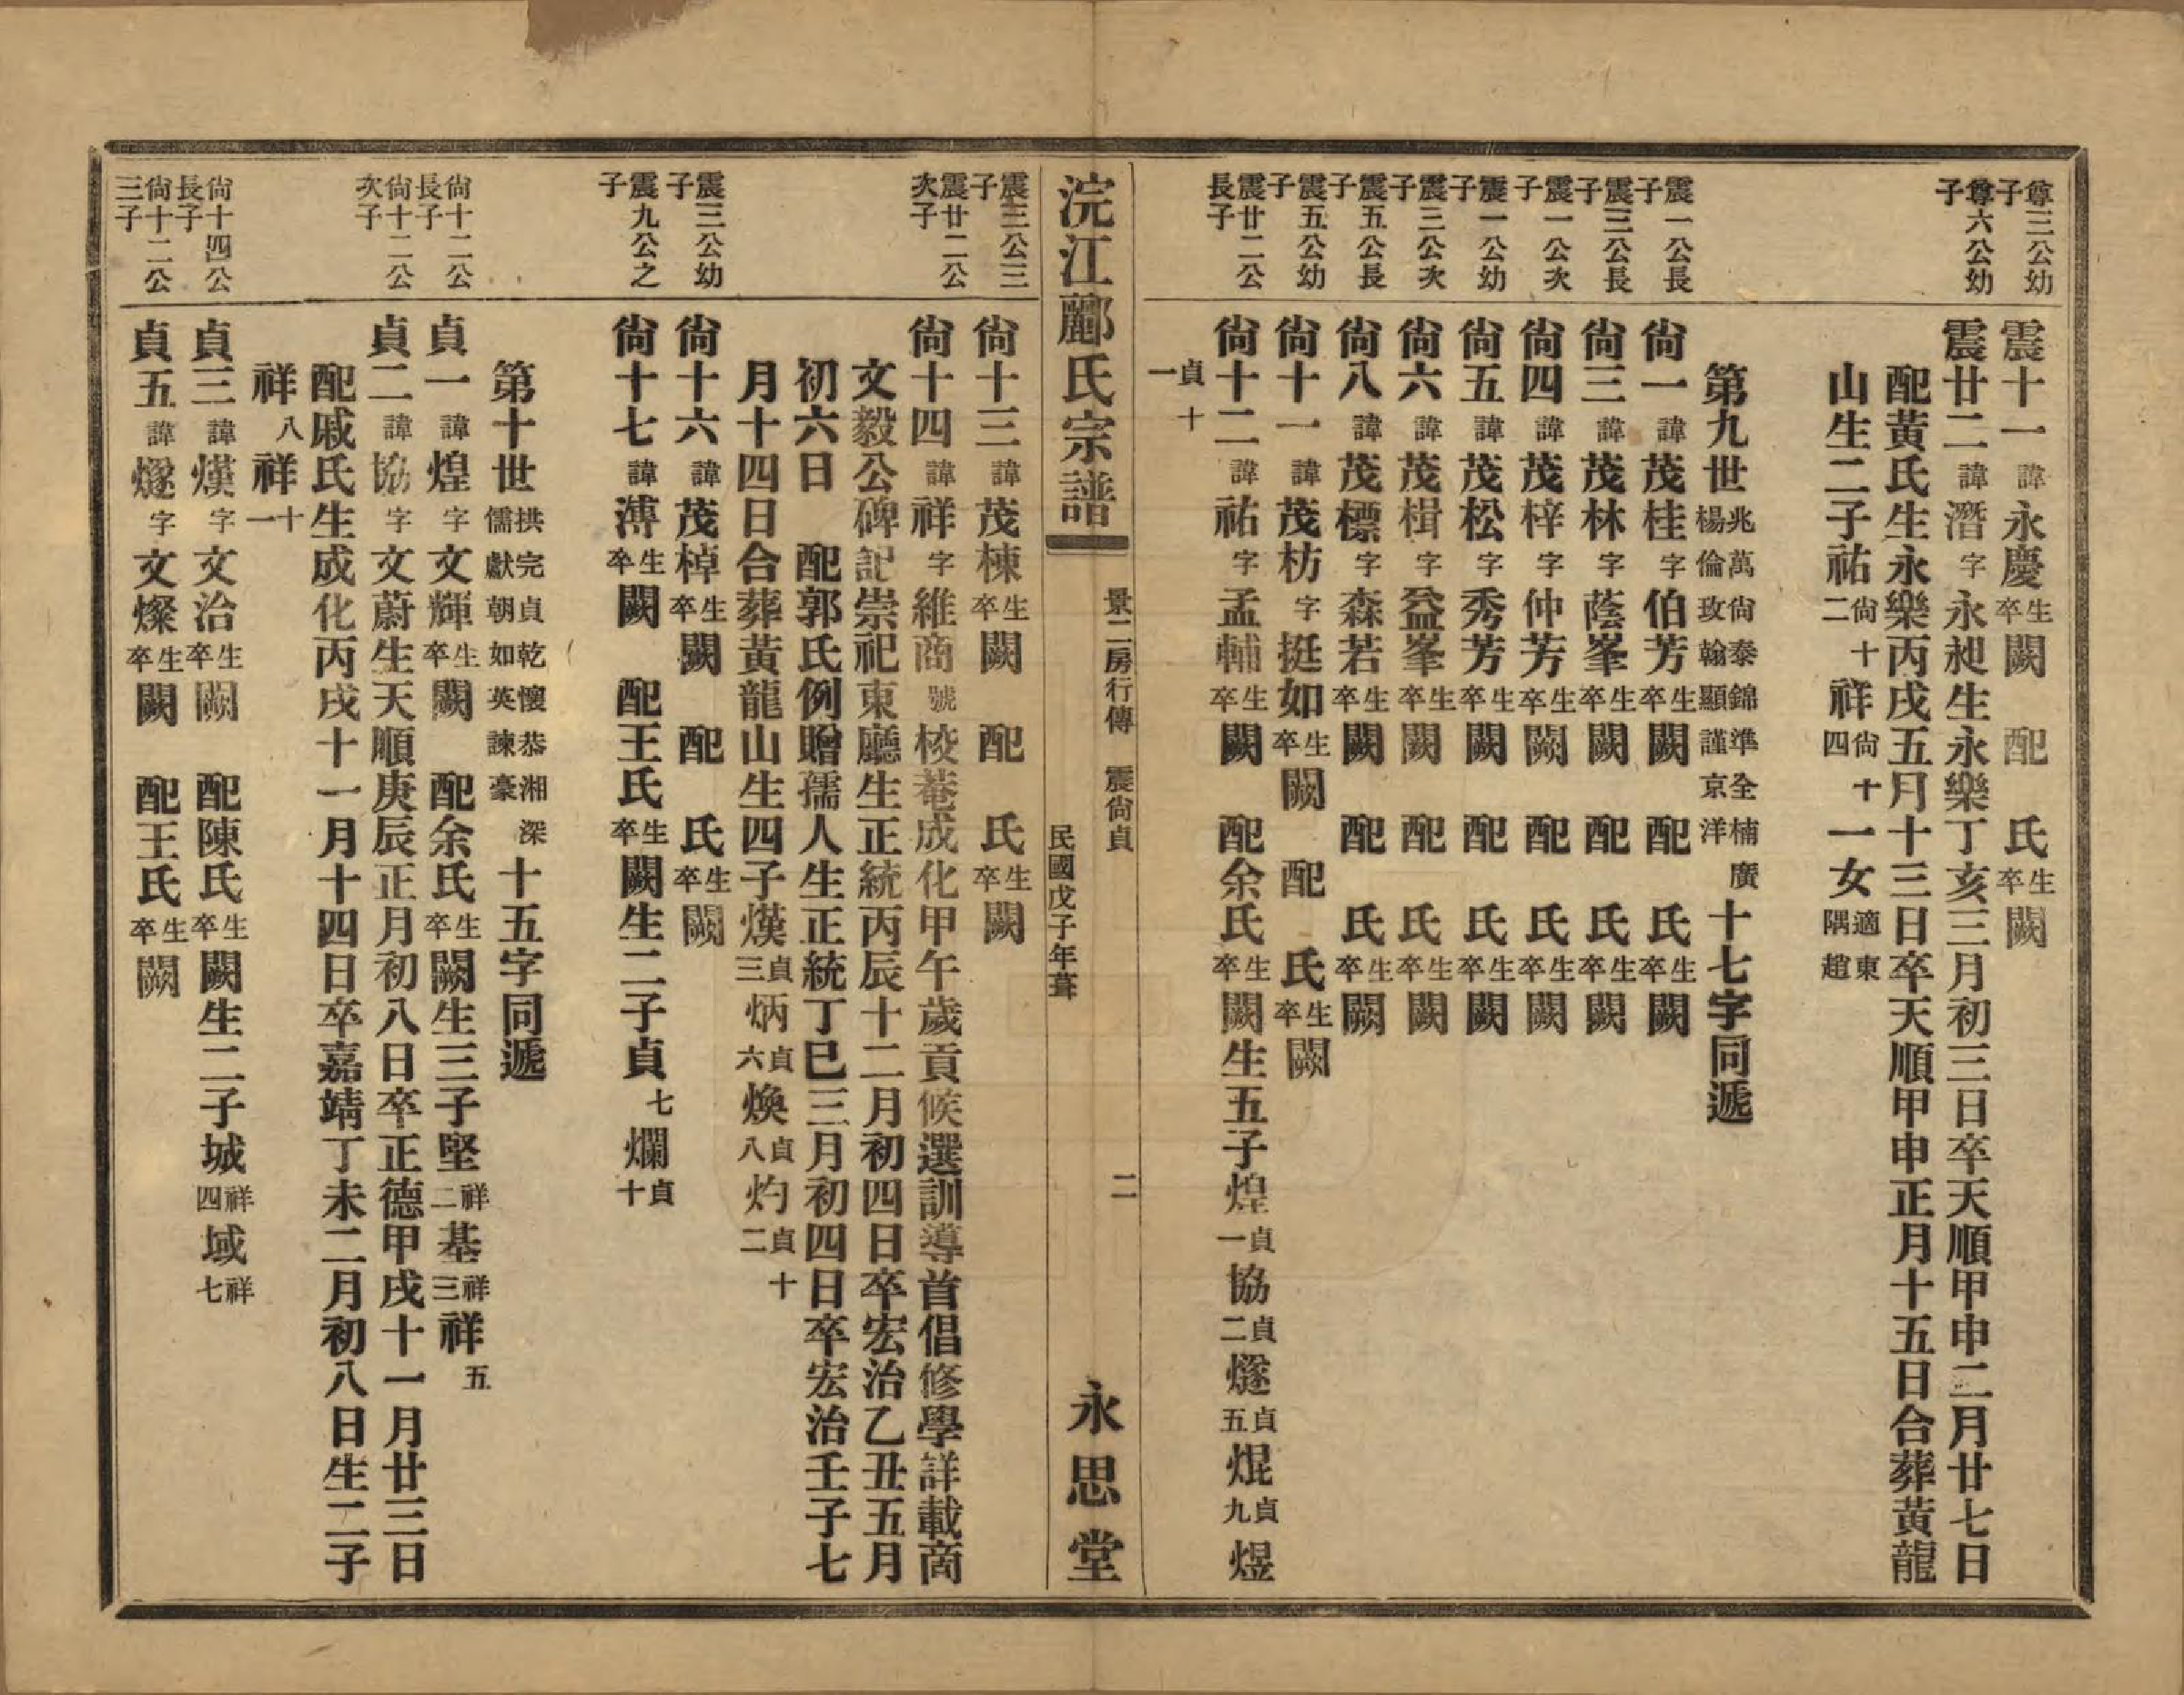 尊三公幼子
震十一諱永慶生卒闕　配　氏生卒闕
尊六公幼子
震廿二諱潛字永昶生永樂丁亥三月初三日卒天順甲申二月廿七日
配黃氏生永樂丙戌五月十三日卒天順甲申正月十五日合葬黃龍
山生二子祐尙十二祥尙十四一女適東隅趙
第九世兆萬尙泰錦準全楠廣楊倫玫翰顯謹京洋十七字同遞
震一公長子
尙一諱茂桂字伯芳生卒闕　配　氏生卒闕
震三公長子
尙三諱茂林字蔭峯生卒闕　配　氏生卒闕
震一公次子
尙四諱茂梓字仲芳生卒闕　配　氏生卒闕
震一公幼子
尙五諱茂松字秀芳生卒闕　配　氏生卒闕
震三公次子
尙六諱茂楫字益峯生卒闕　配　氏生卒闕
震五公長子
尙八諱茂標字森若生卒闕　配　氏生卒闕
震五公幼子
尙十一諱茂枋字挺如生卒闕　配　氏生卒闕
震廿二公長子
尙十二諱祐字孟輔生卒闕　配余氏生卒闕生五子煌貞一協貞二燧貞五焜貞九煜
貞十一
浣江酈氏宗譜
景二房行傳　震尙貞
民國戊子年葺
二
永思堂
震三公三子
尙十三諱茂棟生卒闕　配　氏生卒闕
震廿二公次子
尙十四諱祥字維商號梭菴成化甲午歲貢候選訓導首倡修學詳載商
文毅公碑記崇祀東廳生正統丙辰十二月初四日卒宏治乙丑五月
初六日　配郭氏例贈孺人生正統丁巳三月初四日卒宏治壬子七
月十四日合葬黃龍山生四子熯貞三炳貞六煥貞八灼貞十二
震三公幼子
尙十六諱茂棹生卒闕　配　氏生卒闕
震九公之子
尙十七諱溥生卒闕　配王氏生卒闕生二子貞七爛貞十
第十世拱完貞乾懷恭湘深儒獻朝如英諫豪十五字同遞
尙十二公長子
貞一諱煌字文輝生卒闕　配余氏生卒闕生三子堅祥二基祥三祥五
尙十二公次子
貞二諱協字文蔚生天順庚辰正月初八日卒正德甲戌十一月廿三日
配戚氏生成化丙戌十一月十四日卒嘉靖丁未二月初八日生二子
祥八祥十一
尙十四公長子
貞三諱熯字文治生卒闕　配陳氏生卒闕生二子城祥四域祥七
尙十二公三子
貞五諱燧字文燦生卒闕　配王氏生卒闕